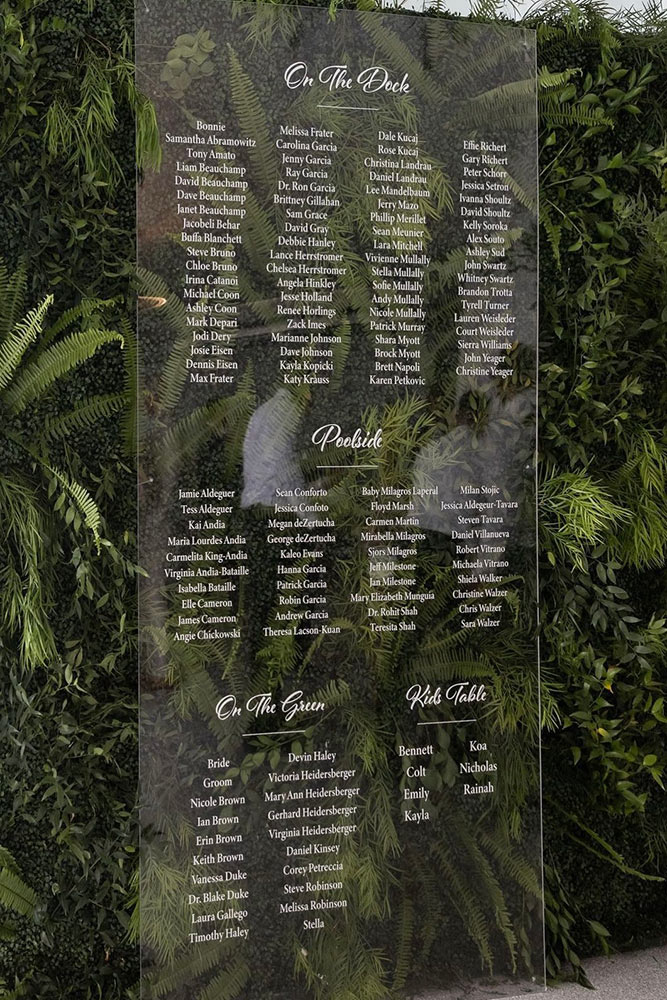 On The Dock
Bonnie
Samantha Abramowitz
Tony Amato
Liam Beauchamp
David Beauchamp
Dave Beauchamp
Janet Beauchamp
Jacobeli Behar
Buffa Blanchett
Steve Bruno
Chloe Bruno
Irina Catanoi
Michael Coon
Ashley Coon
Mark Depari
Jodi Dery
Josie Eisen
Dennis Eisen
Max Frater
Melissa Frater
Carolina Garcia
Jenny Garcia
Ray Garcia
Dr. Ron Garcia
Brittney Gillahan
Sam Grace
David Gray
Debbie Hanley
Lance Herrstromer
Chelsea Herrstromer
Angela Hinkley
Jesse Holland
Renee Horlings
Zack Imes
Marianne Johnson
Dave Johnson
Kayla Kopicki
Katy Krauss
Dale Kucaj
Rose Kucaj
Christina Landrau
Daniel Landrau
Lee Mandelbaum
Jerry Mazo
Phillip Merillet
Sean Meunier
Lara Mitchell
Vivienne Mullally
Stella Mullally
Sofie Mullally
Andy Mullally
Nicole Mullally
Patrick Murray
Shara Myott
Brock Myott
Brett Napoli
Karen Petkovic
Effie Richert
Gary Richert
Peter Schorr
Jessica Setron
Ivanna Shoultz
David Shoultz
Kelly Soroka
Alex Souto
Ashley Sud
John Swartz
Whitney Swartz
Brandon Trotta
Tyrell Turner
Lauren Weisleder
Court Weisleder
Sierra Williams
John Yeager
Christine Yeager
Poolside
Jamie Aldeguer
Tess Aldeguer
Kai Andia
Maria Lourdes Andia
Carmelita King-Andia
Virginia Andia-Bataille
Isabella Bataille
Elle Cameron
James Cameron
Angie Chickowski
Sean Conforto
Jessica Confoto
Megan deZertucha
George deZertucha
Kaleo Evans
Hanna Garcia
Patrick Garcia
Robin Garcia
Andrew Garcia
Theresa Lacson-Kuan
Baby Milagros Laperal
Floyd Marsh
Carmen Martin
Mirabella Milagros
Sjors Milagros
Jeff Milestone
Jan Milestone
Mary Elizabeth Munguia
Dr. Rohit Shah
Teresita Shah
Milan Stojic
Jessica Aldegeur-Tavara
Steven Tavara
Daniel Villanueva
Robert Vitrano
Michaela Vitrano
Shiela Walker
Christine Walzer
Chris Walzer
Sara Walzer
On The Green
Bride
Groom
Nicole Brown
Ian Brown
Erin Brown
Keith Brown
Vanessa Duke
Dr. Blake Duke
Laura Gallego
Timothy Haley
Devin Haley
Victoria Heidersberger
Mary Ann Heidersberger
Gerhard Heidersberger
Virginia Heidersberger
Daniel Kinsey
Corey Petreccia
Steve Robinson
Melissa Robinson
Stella
Kids Table
Bennett
Colt
Emily
Kayla
Koa
Nicholas
Rainah